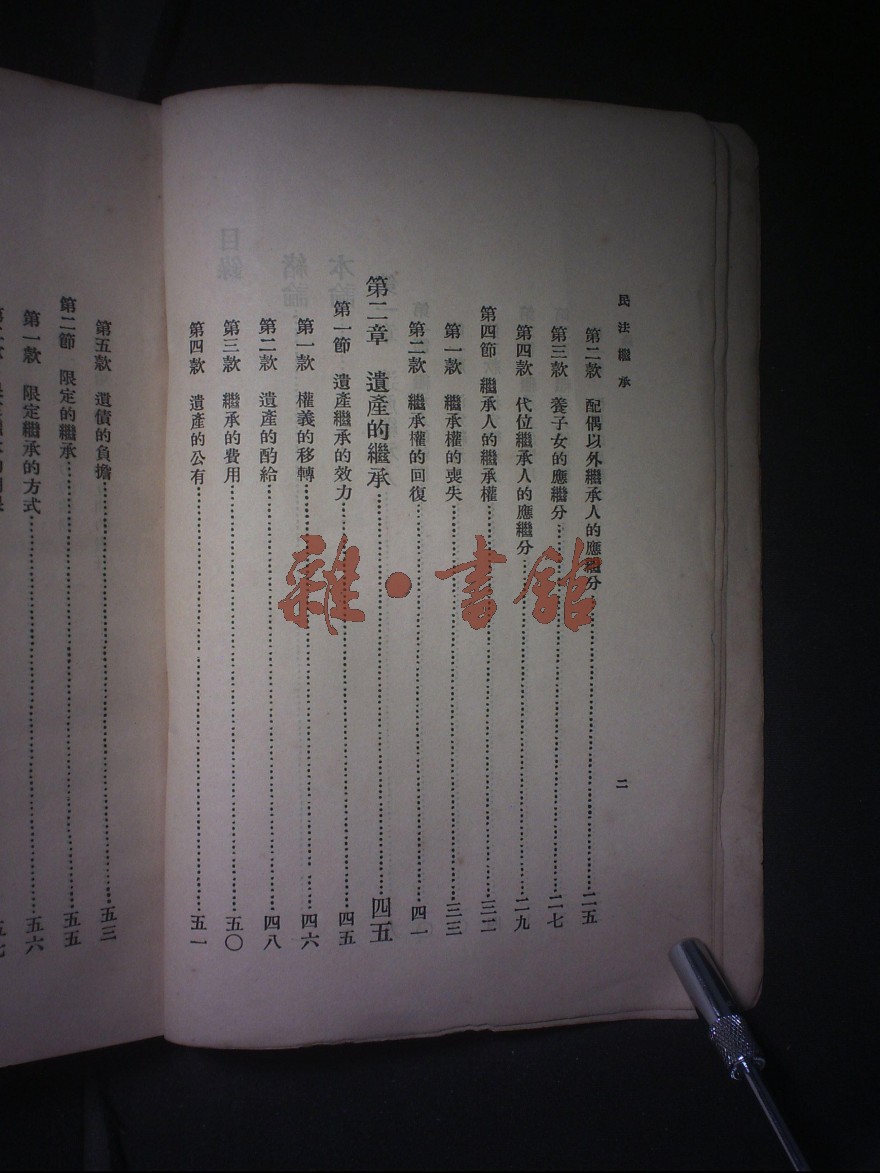 民法繼承
二
第二款 配偶以外繼承人的應繼分……二五
第三款 養子女的應繼分……二七
第四款 代位繼承人的應繼分……二九
第四節 繼承人的繼承權……三二
第一款 繼承權的喪失……三三
第二款 繼承權的回復……四一
第二章 遺產的繼承……四五
第一節 遺產繼承的效力……四五
第一款 權義的移轉……四六
第二款 遺產的酌給……四八
第三款 繼承的費用……五〇
第四款 遺產的公有……五一
第五款 遺債的負擔……五三
第二節 限定的繼承……五五
第一款 限定繼承的方式……五六
雜·書館
目錄
緒論
本論